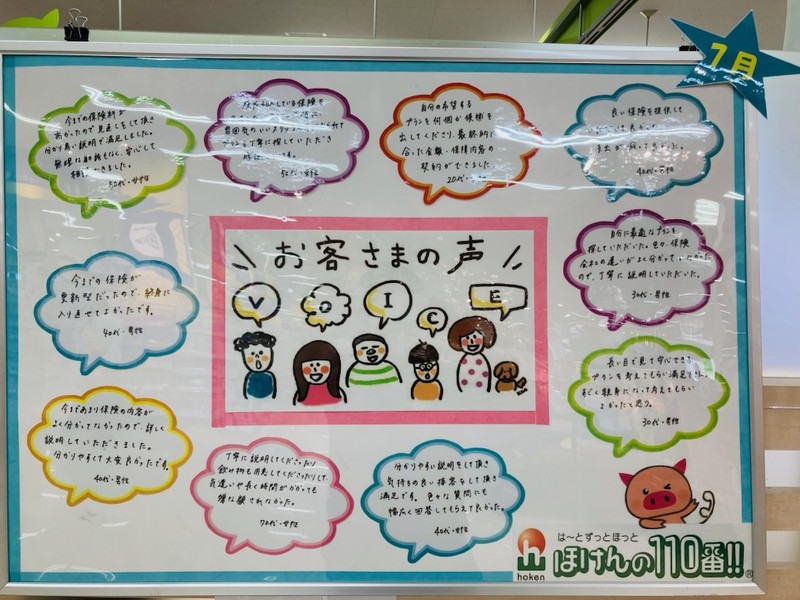 7月
今までの保険料が
高かったので見直しをして頂き
分かり易い説明で満足しました。
無理なお話もなく、安心して
相談できました。
50代・女性
プランを丁寧に探していただき
50代・女性
自分の希望する
プランを何個か候補を
出してくださり、最終的に
合った金額・保障内容の
契約ができました
20代・
良い保険を提供して
40代・男性
自分に最適なプランを
探していただいた。色々、保険
会社の違いがよく分かっていなかった
ので、丁寧に説明していただいた。
30代・男性
お客さまの声
VOICE
今までの保険が
更新型だったので、終身に
入り直せてよかったです。
40代・男性
長い目で見て安心できる
プランを考えてもらい満足です。
すごく親身になって考えてもらい
よかったと思う。
30代・男性
今まであまり保険の内容が
よく分かってなかったので、詳しく
説明していただきました。
分かりやすくて大変良かったです。
40代・男性
丁寧に説明してくださったり
飲み物も用意してくださったりして
気遣いや長く時間がかかっても
嫌な顔されなかった。
20代・女性
分かりやすい説明をして頂き
気持ちの良い接客をして頂き
満足です。色々な質問にも
幅広く回答してもらえて良かった。
40代・女性
は〜とずっとほっと
ほけんの110番!!®
h
hoken